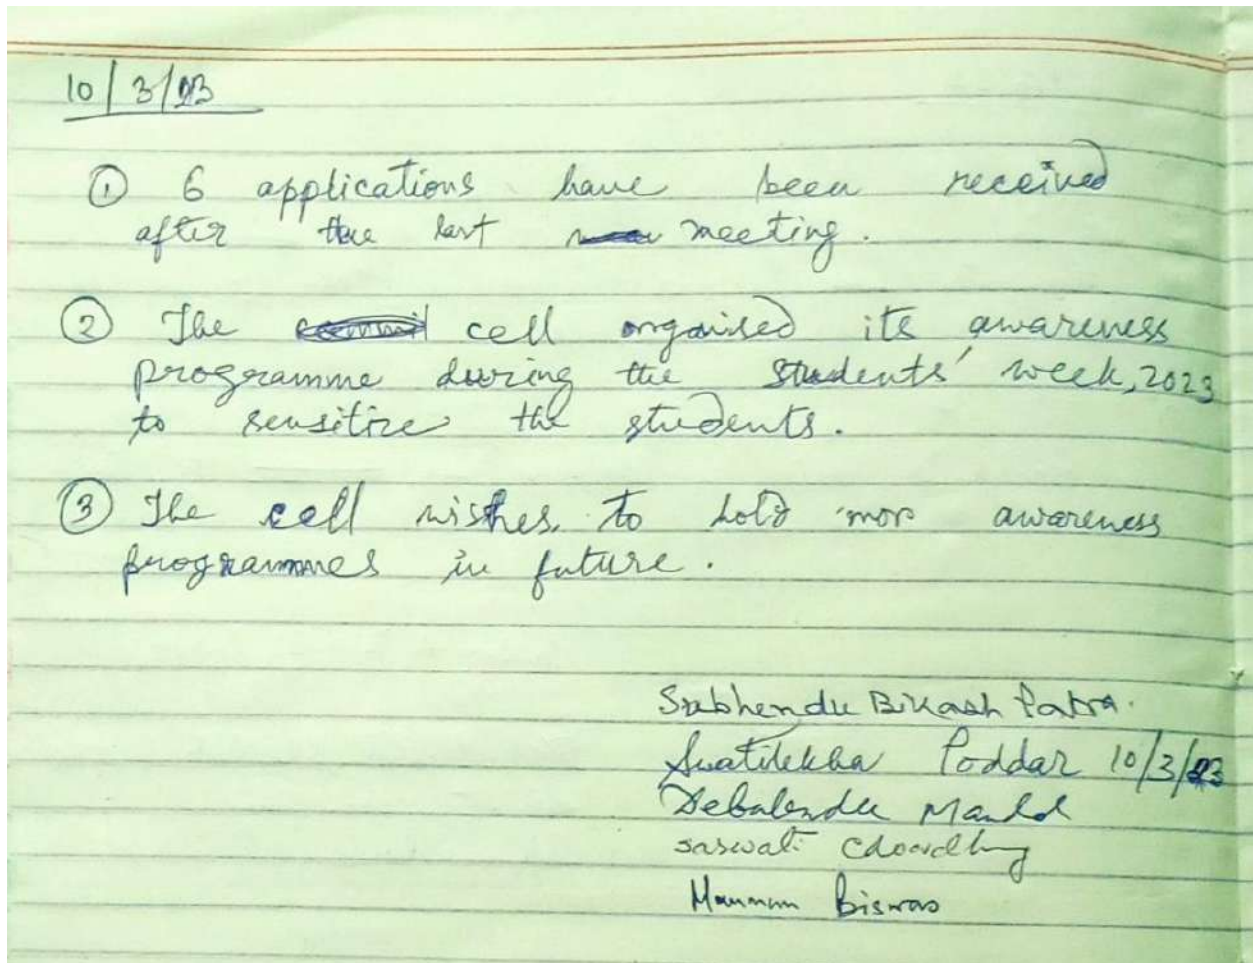 10/3/23
① 6 applications have been received
after the last meeting.
② The cell organised its awareness
programme during the Students' week, 2023
to sensitize the students.
③ The cell wishes to hold more awareness
programmes in future.
Subhendu Bikash Patra.
Swatilekha Poddar 10/3/23
Debalendu Mandal
saswati Chowdhury
Biswas